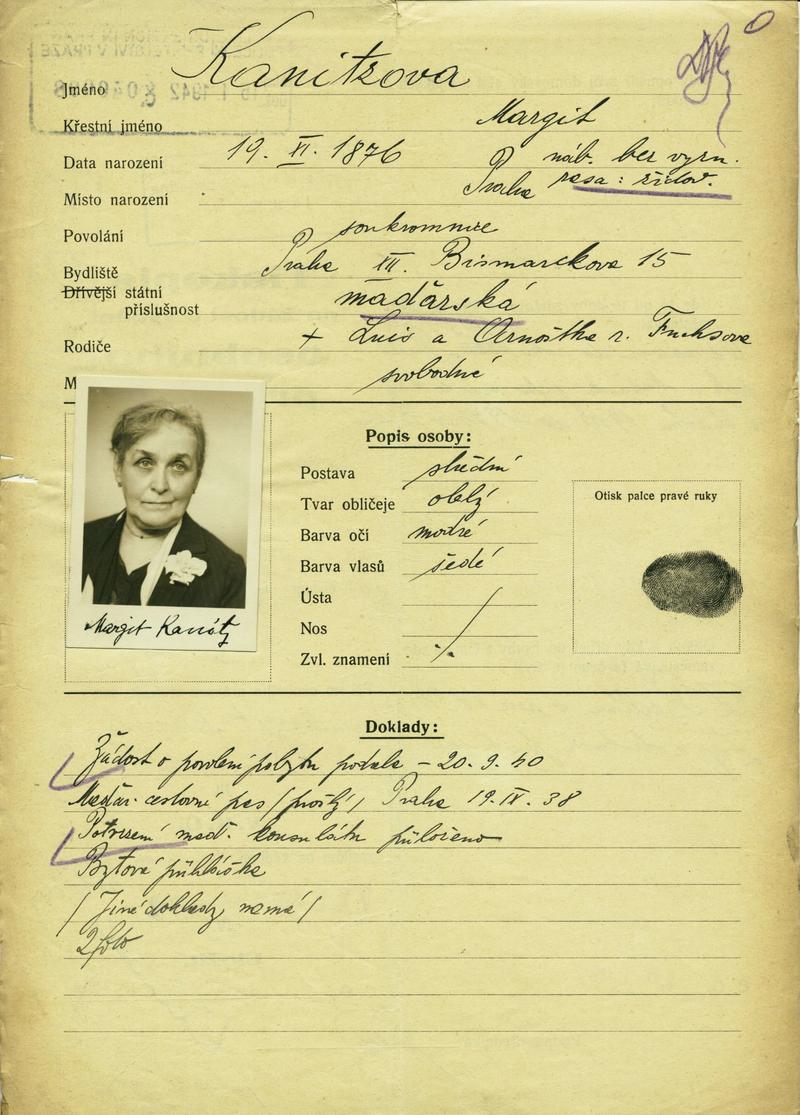 Jméno Kanitzova
Křestní jméno Margit
Data narození 19. XI. 1876 náb. bez vyzn.
Místo narození Praha rasa: židov.
Povolání soukromnice
Bydliště Praha XII. Bismarckova 15
Dřívější státní
příslušnost maďarská
Rodiče + Luis a Arnoštka r. Fuchsova
M svobodná
Popis osoby:
Postava střední
Tvar obličeje oblý
Barva očí modré
Barva vlasů šedé
Ústa /
Nos
Zvl. znamení
Otisk palce pravé ruky
Margit Kanitz
Doklady:
Žádost o povolení pobytu podala – 20. 9. 40
Maďar. cestovní pas /prošlý/ Praha 19. IV. 38
Potvrzení maď. konsulátu přiloženo
Bytová přihláška
/ Jiné doklady nemá /
2 foto